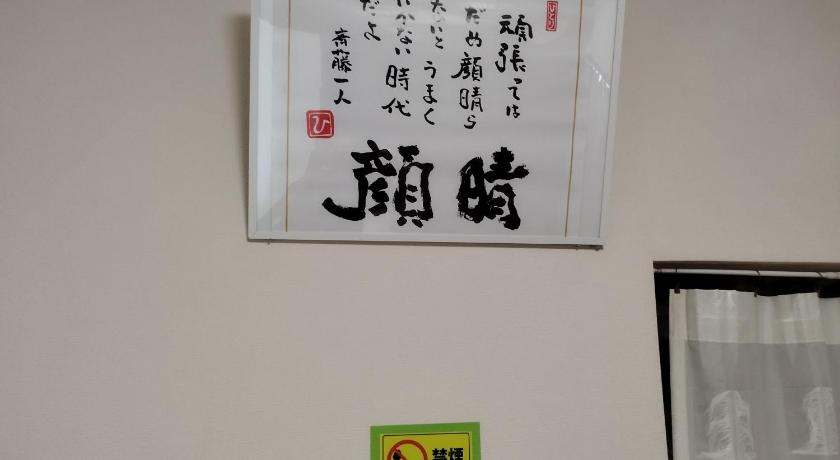 ひとり
頑張っては
だめ顔晴ら
ないと うまく
いかない時代
だよ
斎藤一人
ひ
顔晴
禁煙